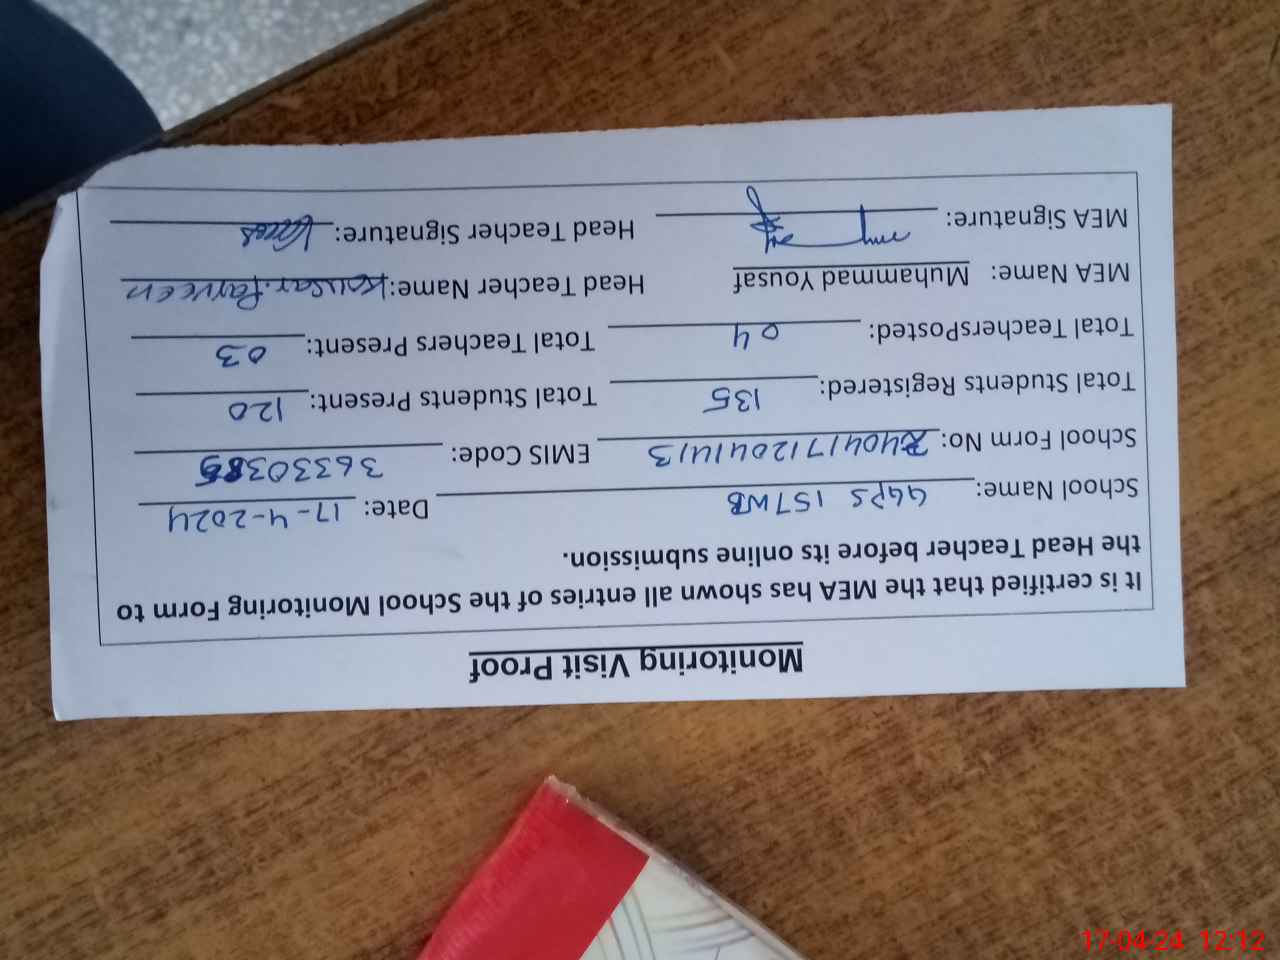 Monitoring Visit Proof
It is certified that the MEA has shown all entries of the School Monitoring Form to
the Head Teacher before its online submission.
School Name: GGPS 157WB Date: 17-4-2024
School Form No: 24041712041413 EMIS Code: 36330385
Total Students Registered: 135 Total Students Present: 120
Total TeachersPosted: 04 Total Teachers Present: 03
MEA Name: Muhammad Yousaf Head Teacher Name: Kousar Parveen
MEA Signature: Head Teacher Signature:
17-04-24 12:12